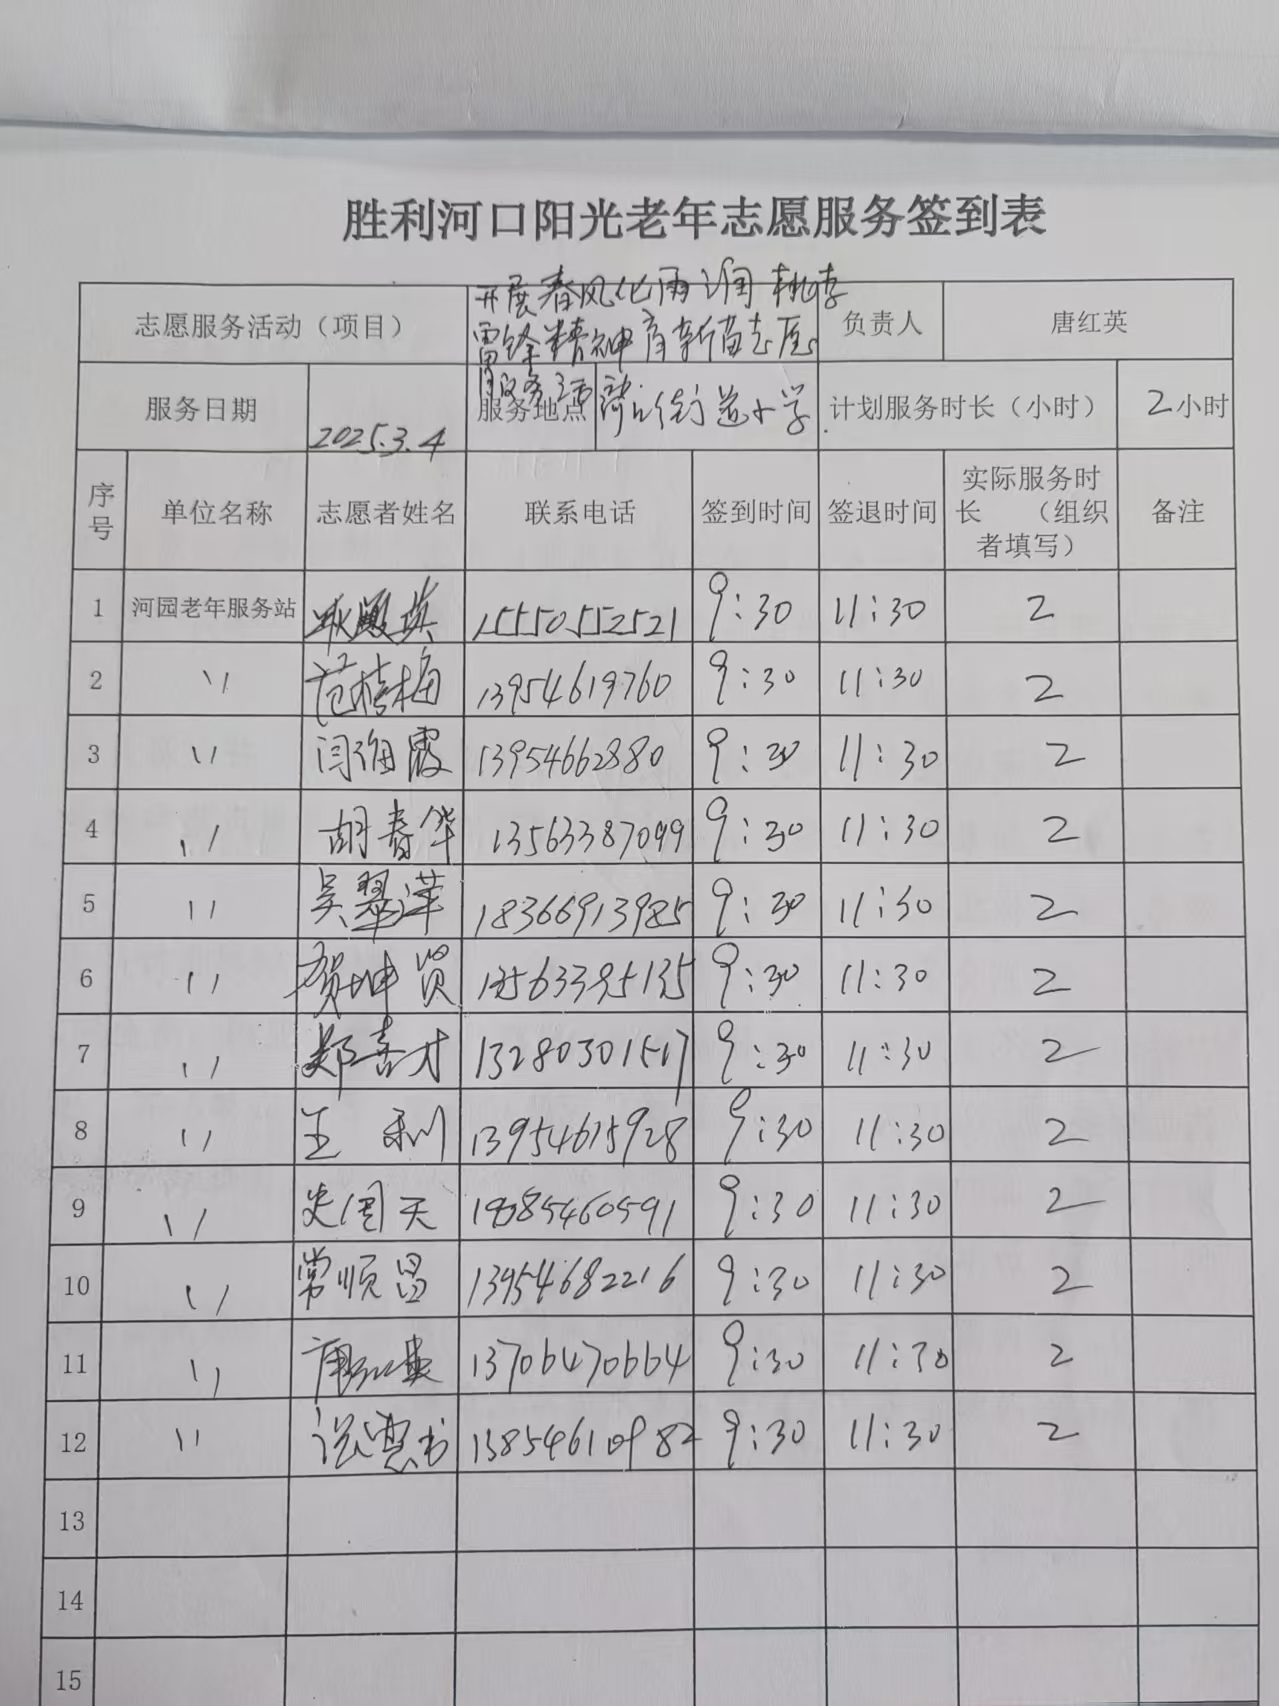 胜利河口阳光老年志愿服务签到表
志愿服务活动（项目） 开展春风化雨润桃李 负责人 唐红英
雷锋精神育新苗志愿
服务活动
服务日期 2025.3.4 服务地点 街道小学 计划服务时长（小时） 2小时
序号 单位名称 志愿者姓名 联系电话 签到时间 签退时间 实际服务时长 （组织者填写） 备注
1 河园老年服务站 15550552521 9:30 11:30 2
2 〃 范桂梅 13954619760 9:30 11:30 2
3 〃 闫海霞 13954662880 9:30 11:30 2
4 〃 胡春华 13563387099 9:30 11:30 2
5 〃 吴翠萍 18366913985 9:30 11:30 2
6 〃 贺坤贤 13563395135 9:30 11:30 2
7 〃 郑喜才 13280301517 9:30 11:30 2
8 〃 王利 13954615928 9:30 11:30 2
9 〃 9:30 11:30 2
10 〃 常顺昌 13954682216 9:30 11:30 2
11 〃 唐红英 13706470664 9:30 11:30 2
12 〃 9:30 11:30 2
13
14
15